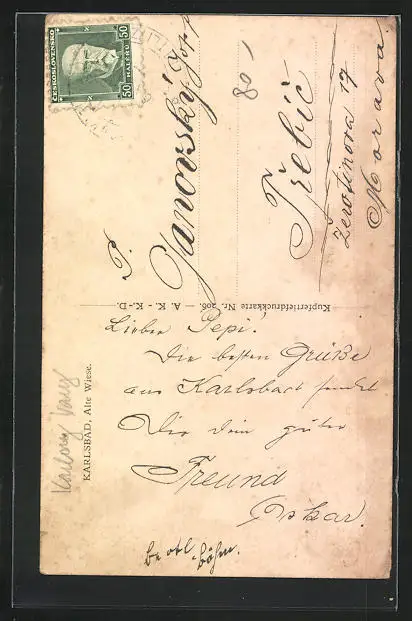 ČESKOSLOVENSKO
50 HALÉŘŮ 50
P.
Janovský Josef
80
Třebíč
Žerotínova 17
Morava
Kupfertiefdruckkarte Nr. 206. — A. K. - K.-D.
KARLSBAD, Alte Wiese.
Karlovy Vary
Lieber Pepi!
Die besten Grüße
aus Karlsbad sendet
Dir dein guter
Freund
Oskar.
böhm.